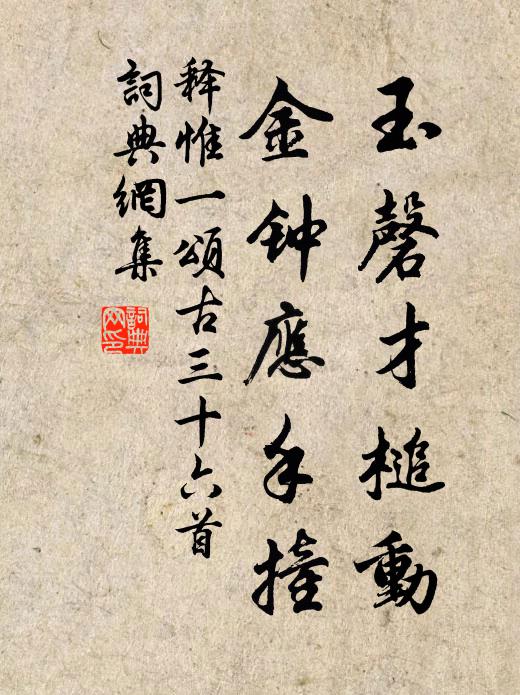 玉磬才槌動
金钟應手撞
释惟一頌古三十六首
詞典網集
詞典網印